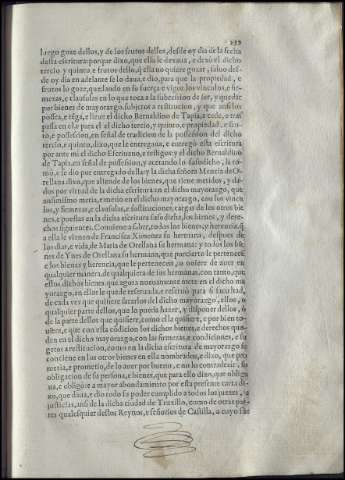 luego goze dellos, y de los frutos dellos, desde oy dia de la fecha
desta escritura: porque dixo, que ella le dexaua, e dexò el dicho
tercio y quinto, e frutos dello, que ella no quiere gozar, saluo des-
de oy dia en adelante se lo daua, e dio, para que la propiedad, e
frutos lo goze, quedando en su fuerça e vigor los vinculos, e fir-
mezas, e clausulas en lo que toca a la subcession de ser, y quedar
por bienes de mayorazgo, subjetos a restitucion, y que aunque los
possea, e tega, e lleue el dicho Bernaldino de Tapia, e cede, e tras
passa en el, e para el el dicho tercio, y quinto, e propiedad, e seño-
rio, e possession, en señal de tradicion de la possession del dicho
tercio, e quinto, e dixo, que le entregaua, e entregò esta escritura
por ante mi el dicho Escriuano, e testigos: y el dicho Bernaldino
de Tapia, en señal de possession, y acetando lo susodicho, la to-
mò, e se dio por entregado della: y la dicha señora Mencia de Ore-
llana dixo, que allende de los bienes, que tiene metidos, y da-
dos por virtud de la dicha escritura en el dicho mayorazgo, que
assimismo metia, e metio en el dicho mayorazgo, con los vincu
los, y firmezas, e clausulas, e sostituciones, cargas de los otros bie
nes, e puestas en la dicha escritura suso dicha, los bienes, y dere-
chos siguientes. Conuiene a saber, todos los bienes, y herencia, q
a ella le vienen de Francisca Ximenez su hermana, despues de
los dias, e vida, de Maria de Orellana su hermana: y todos los bie
nes de Ynes de Orellana su hermana, que por ciarte le pertenecẽ:
e los bienes y herencia, que le pertenecen, o uuiere de auer en
qualquier manera, de qualquiera de sus hermanas, con tanto, que
ellos dichos bienes, que agora nueuamente mete en el dicho ma
yorazgo, en ellos le quede reseruada, e reseruò para si facultad,
de cada vez que quisiere sacarlos del dicho mayorazgo, ellos, o
qualquier parte dellos, que lo pueda hazer, y disponer dellos, o
de la parte dellos que quisiere, como ella quisiere, e por bien tu-
uiere, e que con esta codicion los dichos bienes, e derechos que-
den en el dicho mayorazgo, con las firmezas e condiciones, e su
getos a restitucion, como en la dicha escritura de mayorazgo se
contiene en los otros bienes en ella nombrados, e dixo, que pro-
metia, e prometio, de lo auer por bueno, e no lo contradezir, so
obligacion de su persona, e bienes, que para ello dixo, que obliga
ua, e obligò: e a mayor abondamiento por esta presente carta di-
xo, que daua, e dio todo su poder cumplido a todos los juezes, y
justicias, ansi de la dicha ciudad de Truxillo, como de otras par-
tes qualesquier destos Reynos, y señorios de Castilla, a cuyo fue